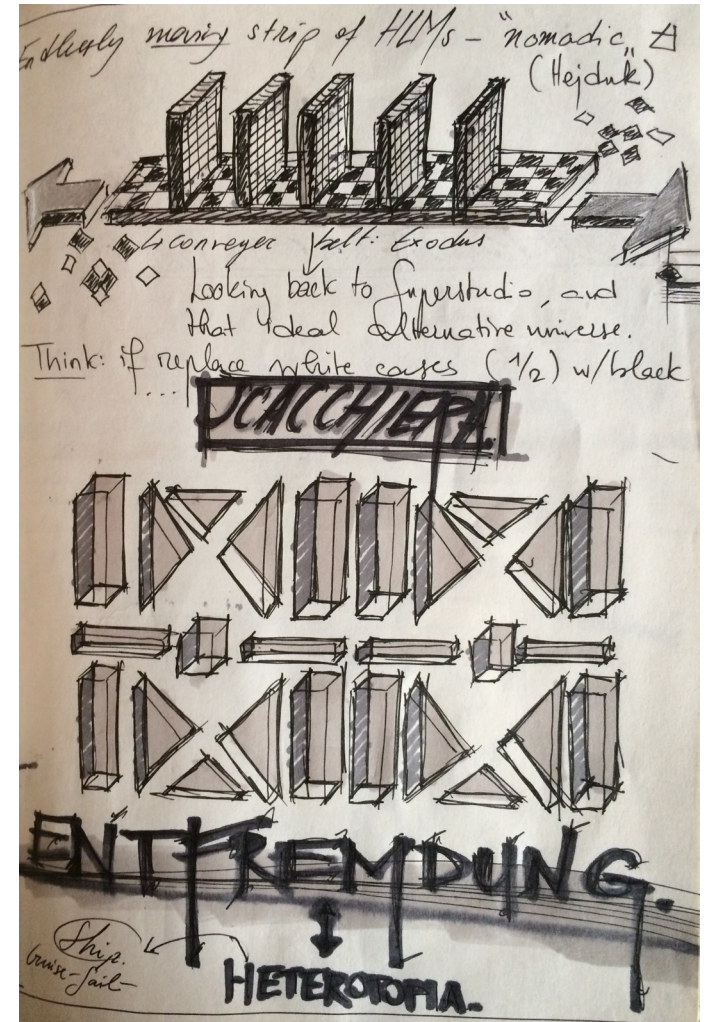 Endlessly moving strip of HLMs – "nomadic"
(Hejduk)
conveyer belt: Exodus
Looking back to Superstudio, and
that ideal alternative universe.
Think: if replace white cases (1/2) w/black
...
SCACCHIERA
ENTFREMDUNG.
Ship.
Cruise-Sail-
HETEROTOPIA.